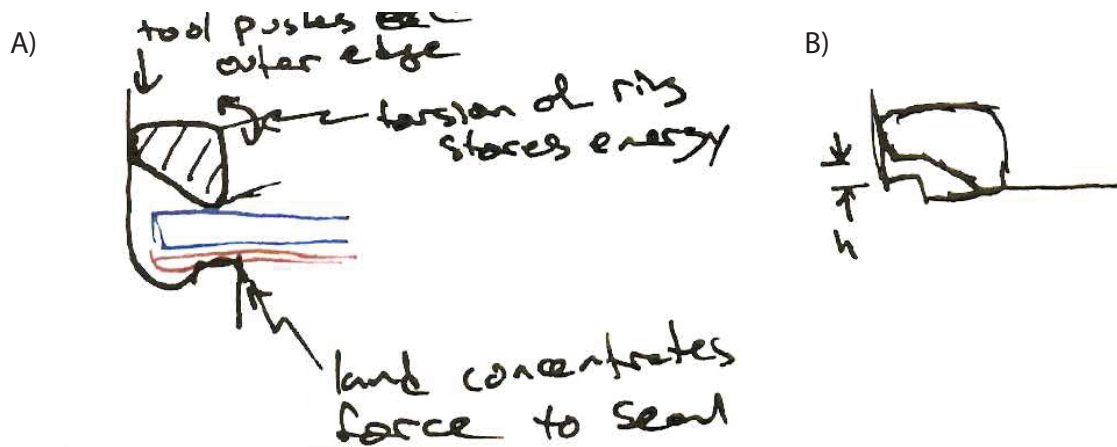 A)
tool pushes
outer edge
torsion of ring
stores energy
land concentrates
force to seal
B)
h